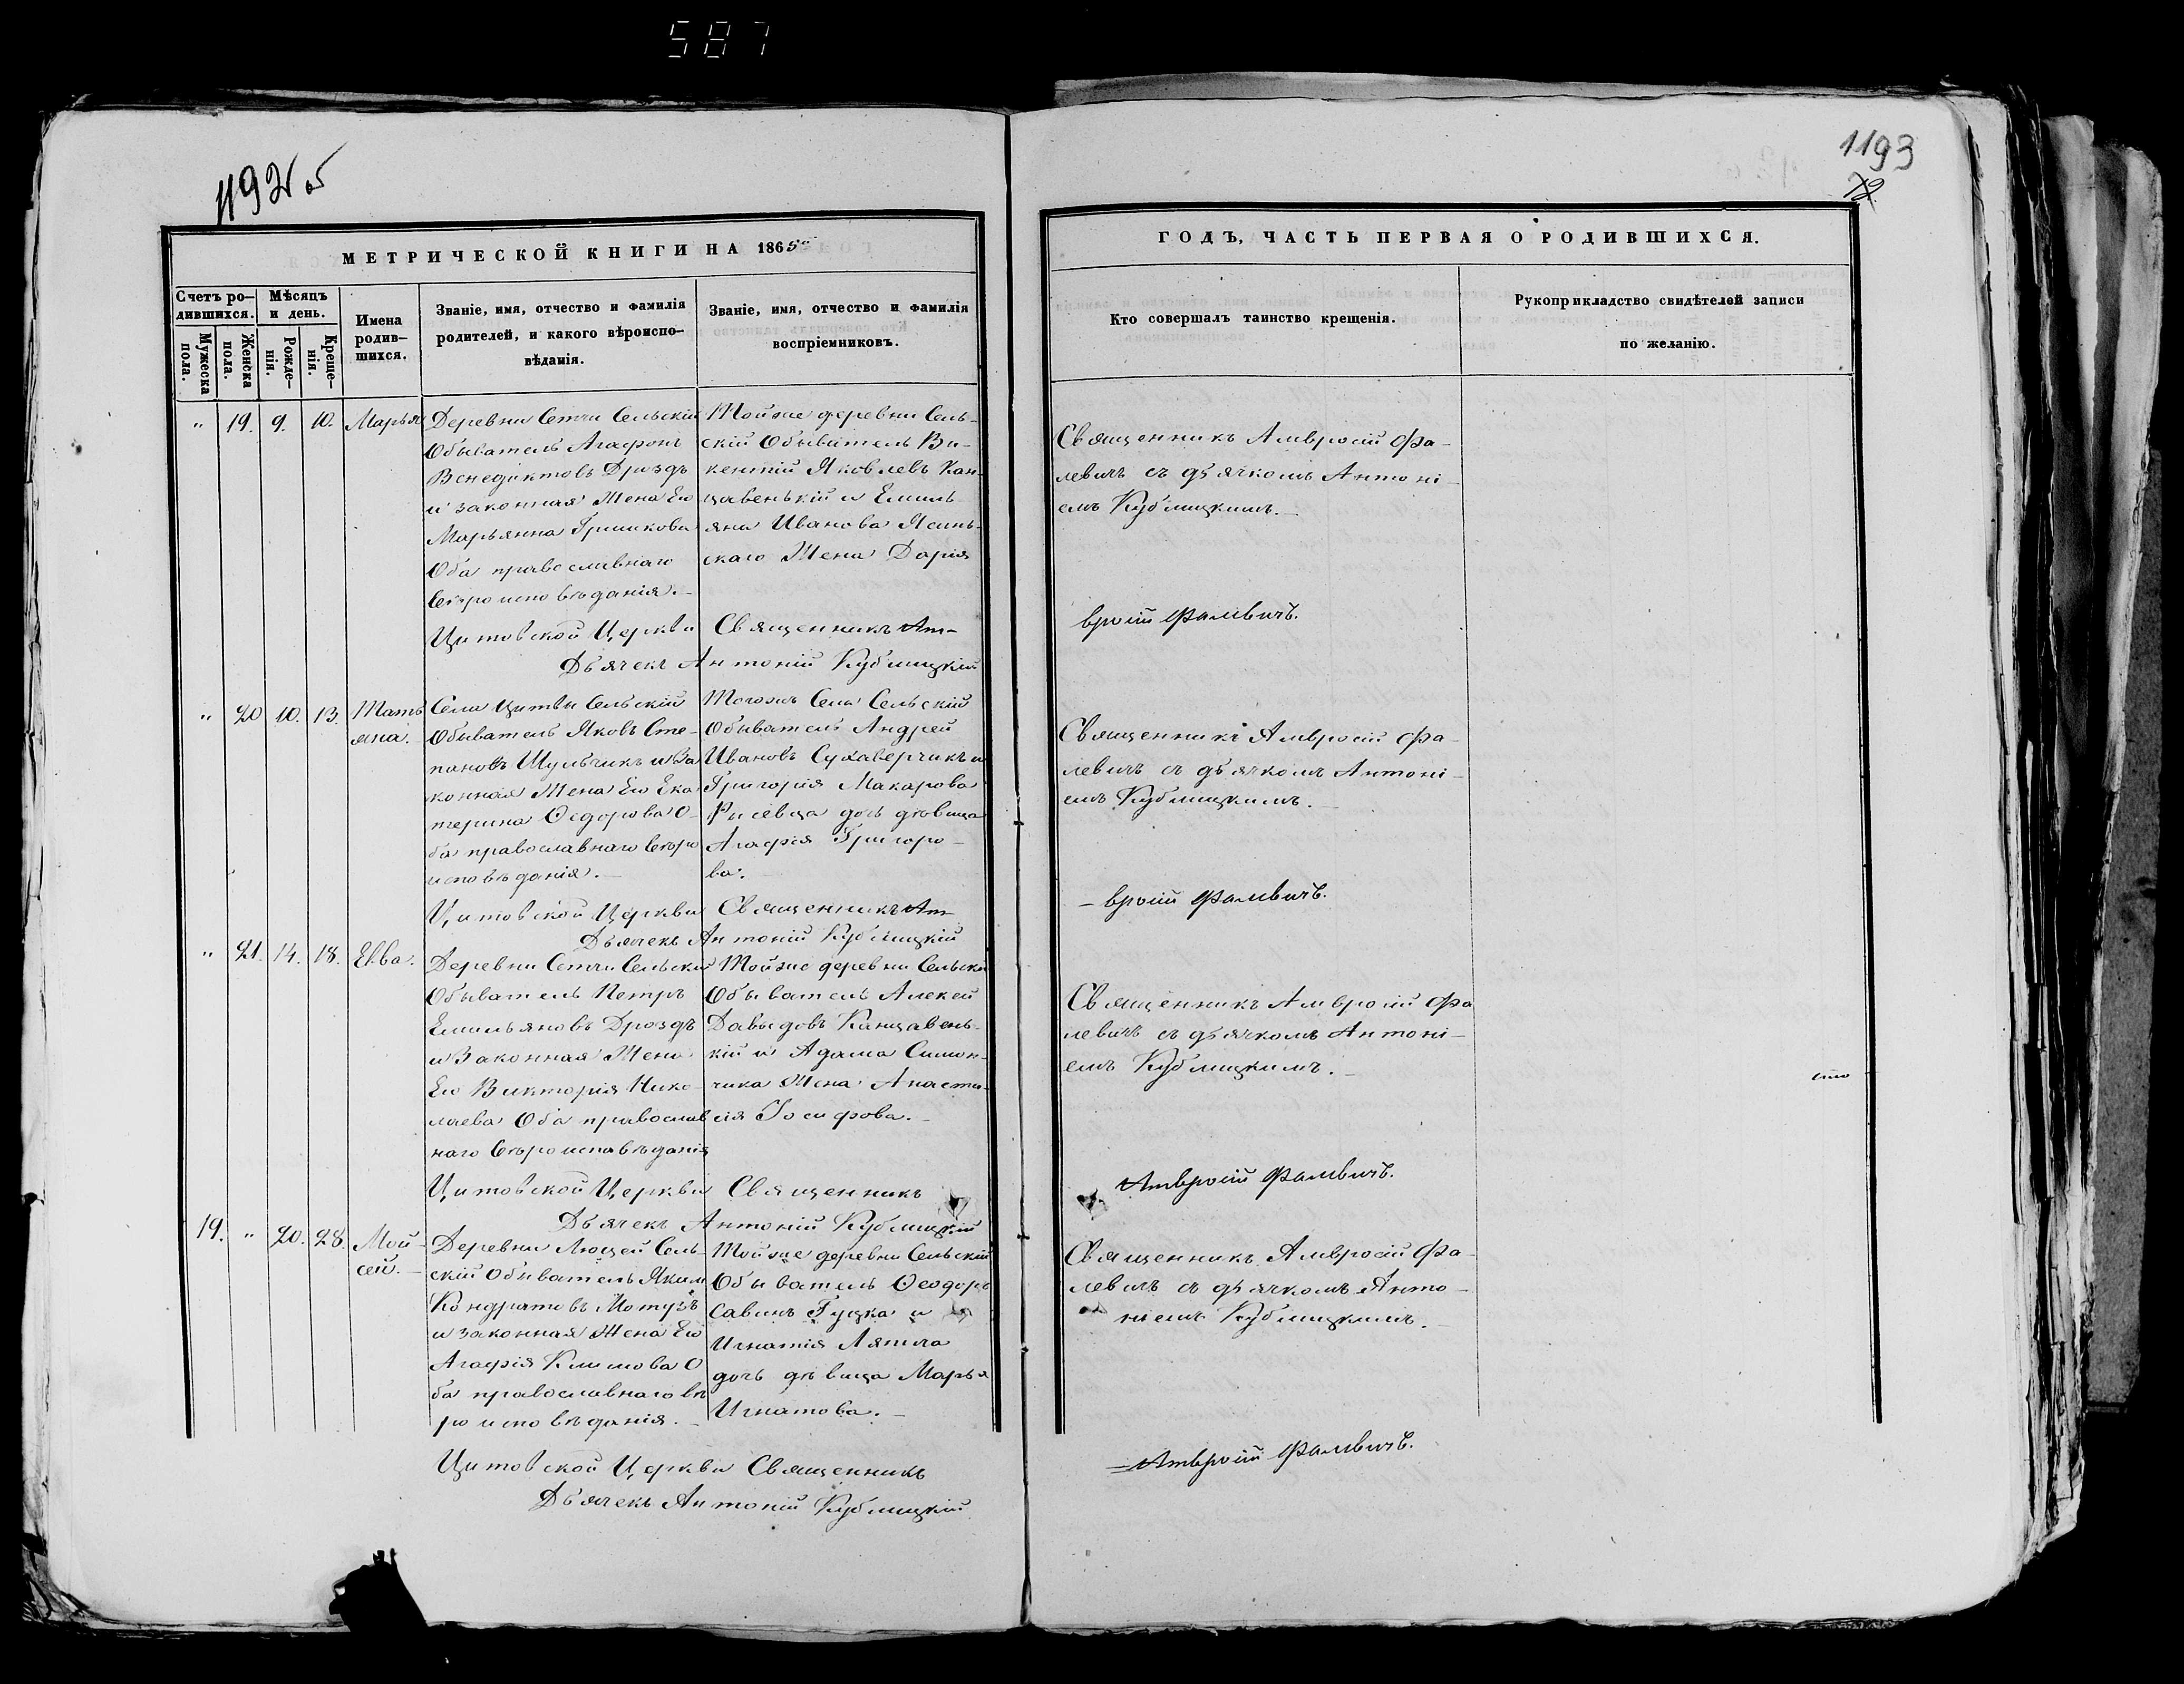 587
1192 об
1193
72
МЕТРИЧЕСКОЙ КНИГИ НА 1865й
Счетъ ро-
дившихся.
Мужеска
пола.
Женска
пола.
Мѣсяцъ
и день.
Рожде-
нія.
Креще-
нія.
Имена
родив-
шихся.
Званіе, имя, отчество и фамилія
родителей, и какого вѣроиспо-
вѣданія.
Званіе, имя, отчество и фамилія
воспріемниковъ.
ГОДЪ, ЧАСТЬ ПЕРВАЯ О РОДИВШИХСЯ.
Кто совершалъ таинство крещенія.
Рукоприкладство свидѣтелей записи
по желанію.
" 19. 9. 10. Марья
Деревни Сетчи Сельскій
Обыватель Агафонъ
Венедиктовъ Дроздъ
и законная Жена Его
Марьянна Гришкова
Оба православнаго
вѣроисповѣданія.-
Тойже деревни Сель-
скій Обыватель Ви-
кентій Яковлевъ Кан-
цавенькій и Емиль-
яна Иванова Ясинь-
скаго Жена Дарія
Священникъ Амвросій Фа-
левичъ съ дьячкомъ Антоні-
емъ Кублицкимъ.-
Цитовской Церкви Священникъ Ам-
вросій Фалевичъ.
Дьячекъ Антоній Кублицкій
" 20 10. 13. Тать
яна.
Села Цитвы Сельскій
Обыватель Яковъ Сте-
пановъ Шульчикъ и За
конная Жена Его Ека
терина Ѳедорова О-
ба православнаго вѣро
исповѣданія.-
Тогожъ Села Сельскій
Обыватель Андрей
Ивановъ Сухаверчикъ и
Григорія Макарова
Рысевца дочь дѣвица
Агафія Григоро-
ва.
Священникъ Амвросій Фа-
левичъ съ дьячкомъ Антоні-
емъ Кублицкимъ.-
Цитовской Церкви Священникъ Ам-
-вросій Фалевичъ.
Дьячекъ Антоній Кублицкій
" 21. 14. 18. Евва.
Деревни Сетчи Сельскій
Обыватель Петръ
Емильяновъ Дроздъ
и Законная Жена
Его Викторія Нико-
лаева Оба православ
наго вѣроисповѣданія
Тойже деревни Сельскій
Обыватель Алексей
Давыдовъ Канцавень-
кій и Адама Симон-
чика Жена Анаста-
сія Іосифова.-
Священникъ Амвросій Фа
левичъ съ дьячкомъ Антоні-
емъ Кублицкимъ.-
Цитовской Церкви Священникъ
Амвросій Фалевичъ.
Дьячекъ Антоній Кублицкій
19. " 20. 28. Мой-
сей.-
Деревни Люцей Сель-
скій Обыватель Яким
Кондратовъ Мотузъ
и законная Жена Его
Агафія Климова О
ба православнаго вѣ
роисповѣданія.-
Тойже деревни Сельскій
Обыватель Ѳеодоръ
Савинъ Гуцка и
Игнатія Ляшла
дочь дѣвица Марья
Игнатова.-
Священникъ Амвросій Фа-
левичъ съ дьячкомъ Анто-
ніемъ Кублицкимъ.-
Цитовской Церкви Священникъ
Амвросій Фалевичъ.
Дьячекъ Антоній Кублицкій